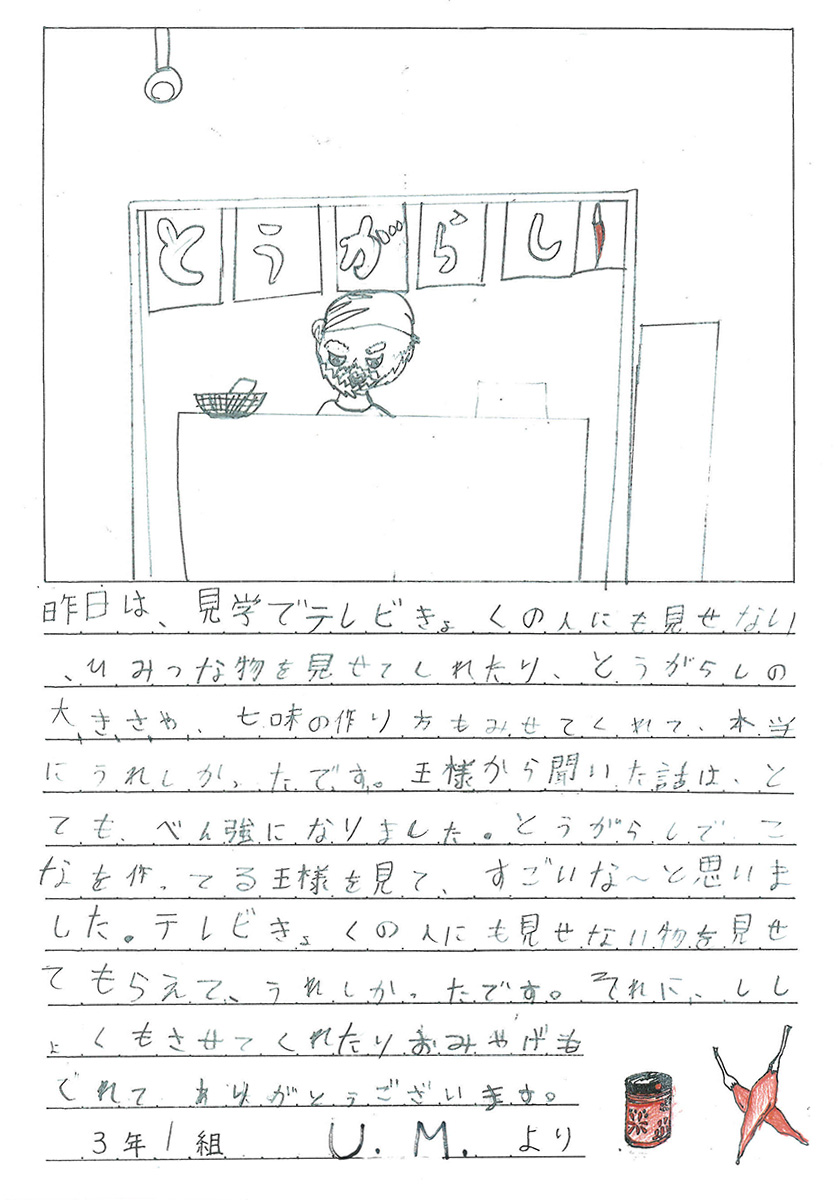 とうがらし
昨日は、見学でテレビきょくの人にも見せない
、ひみつな物を見せてくれたり、とうがらしの
大きさや、七味の作り方もみせてくれて、本当
にうれしかったです。王様から聞いた話は、と
ても、べん強になりました。とうがらしで、こ
なを作ってる王様を見て、すごいな〜と思いま
した。テレビきょくの人にも見せない物を見せ
てもらえて、うれしかったです。それに、しし
ょくもさせてくれたりおみやげも
くれてありがとうございます。
3年1組 U.M.より